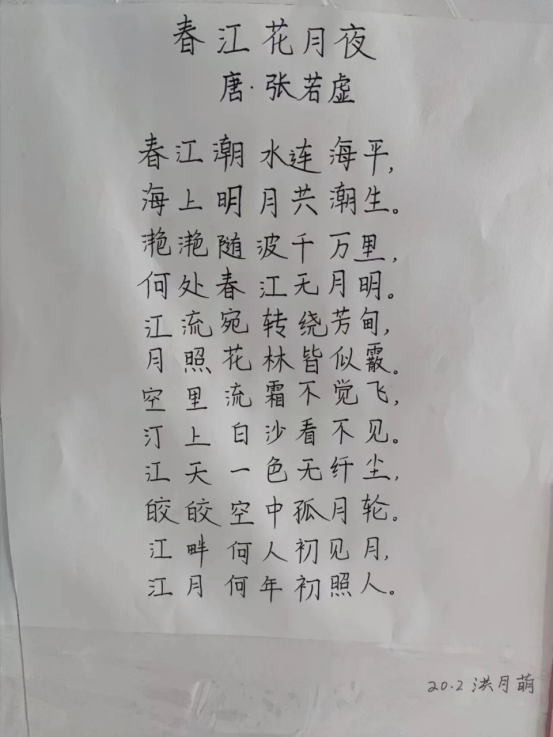 春江花月夜
唐·张若虚
春江潮水连海平,
海上明月共潮生。
滟滟随波千万里,
何处春江无月明。
江流宛转绕芳甸,
月照花林皆似霰。
空里流霜不觉飞,
汀上白沙看不见。
江天一色无纤尘,
皎皎空中孤月轮。
江畔何人初见月,
江月何年初照人。
20.2 洪月萌